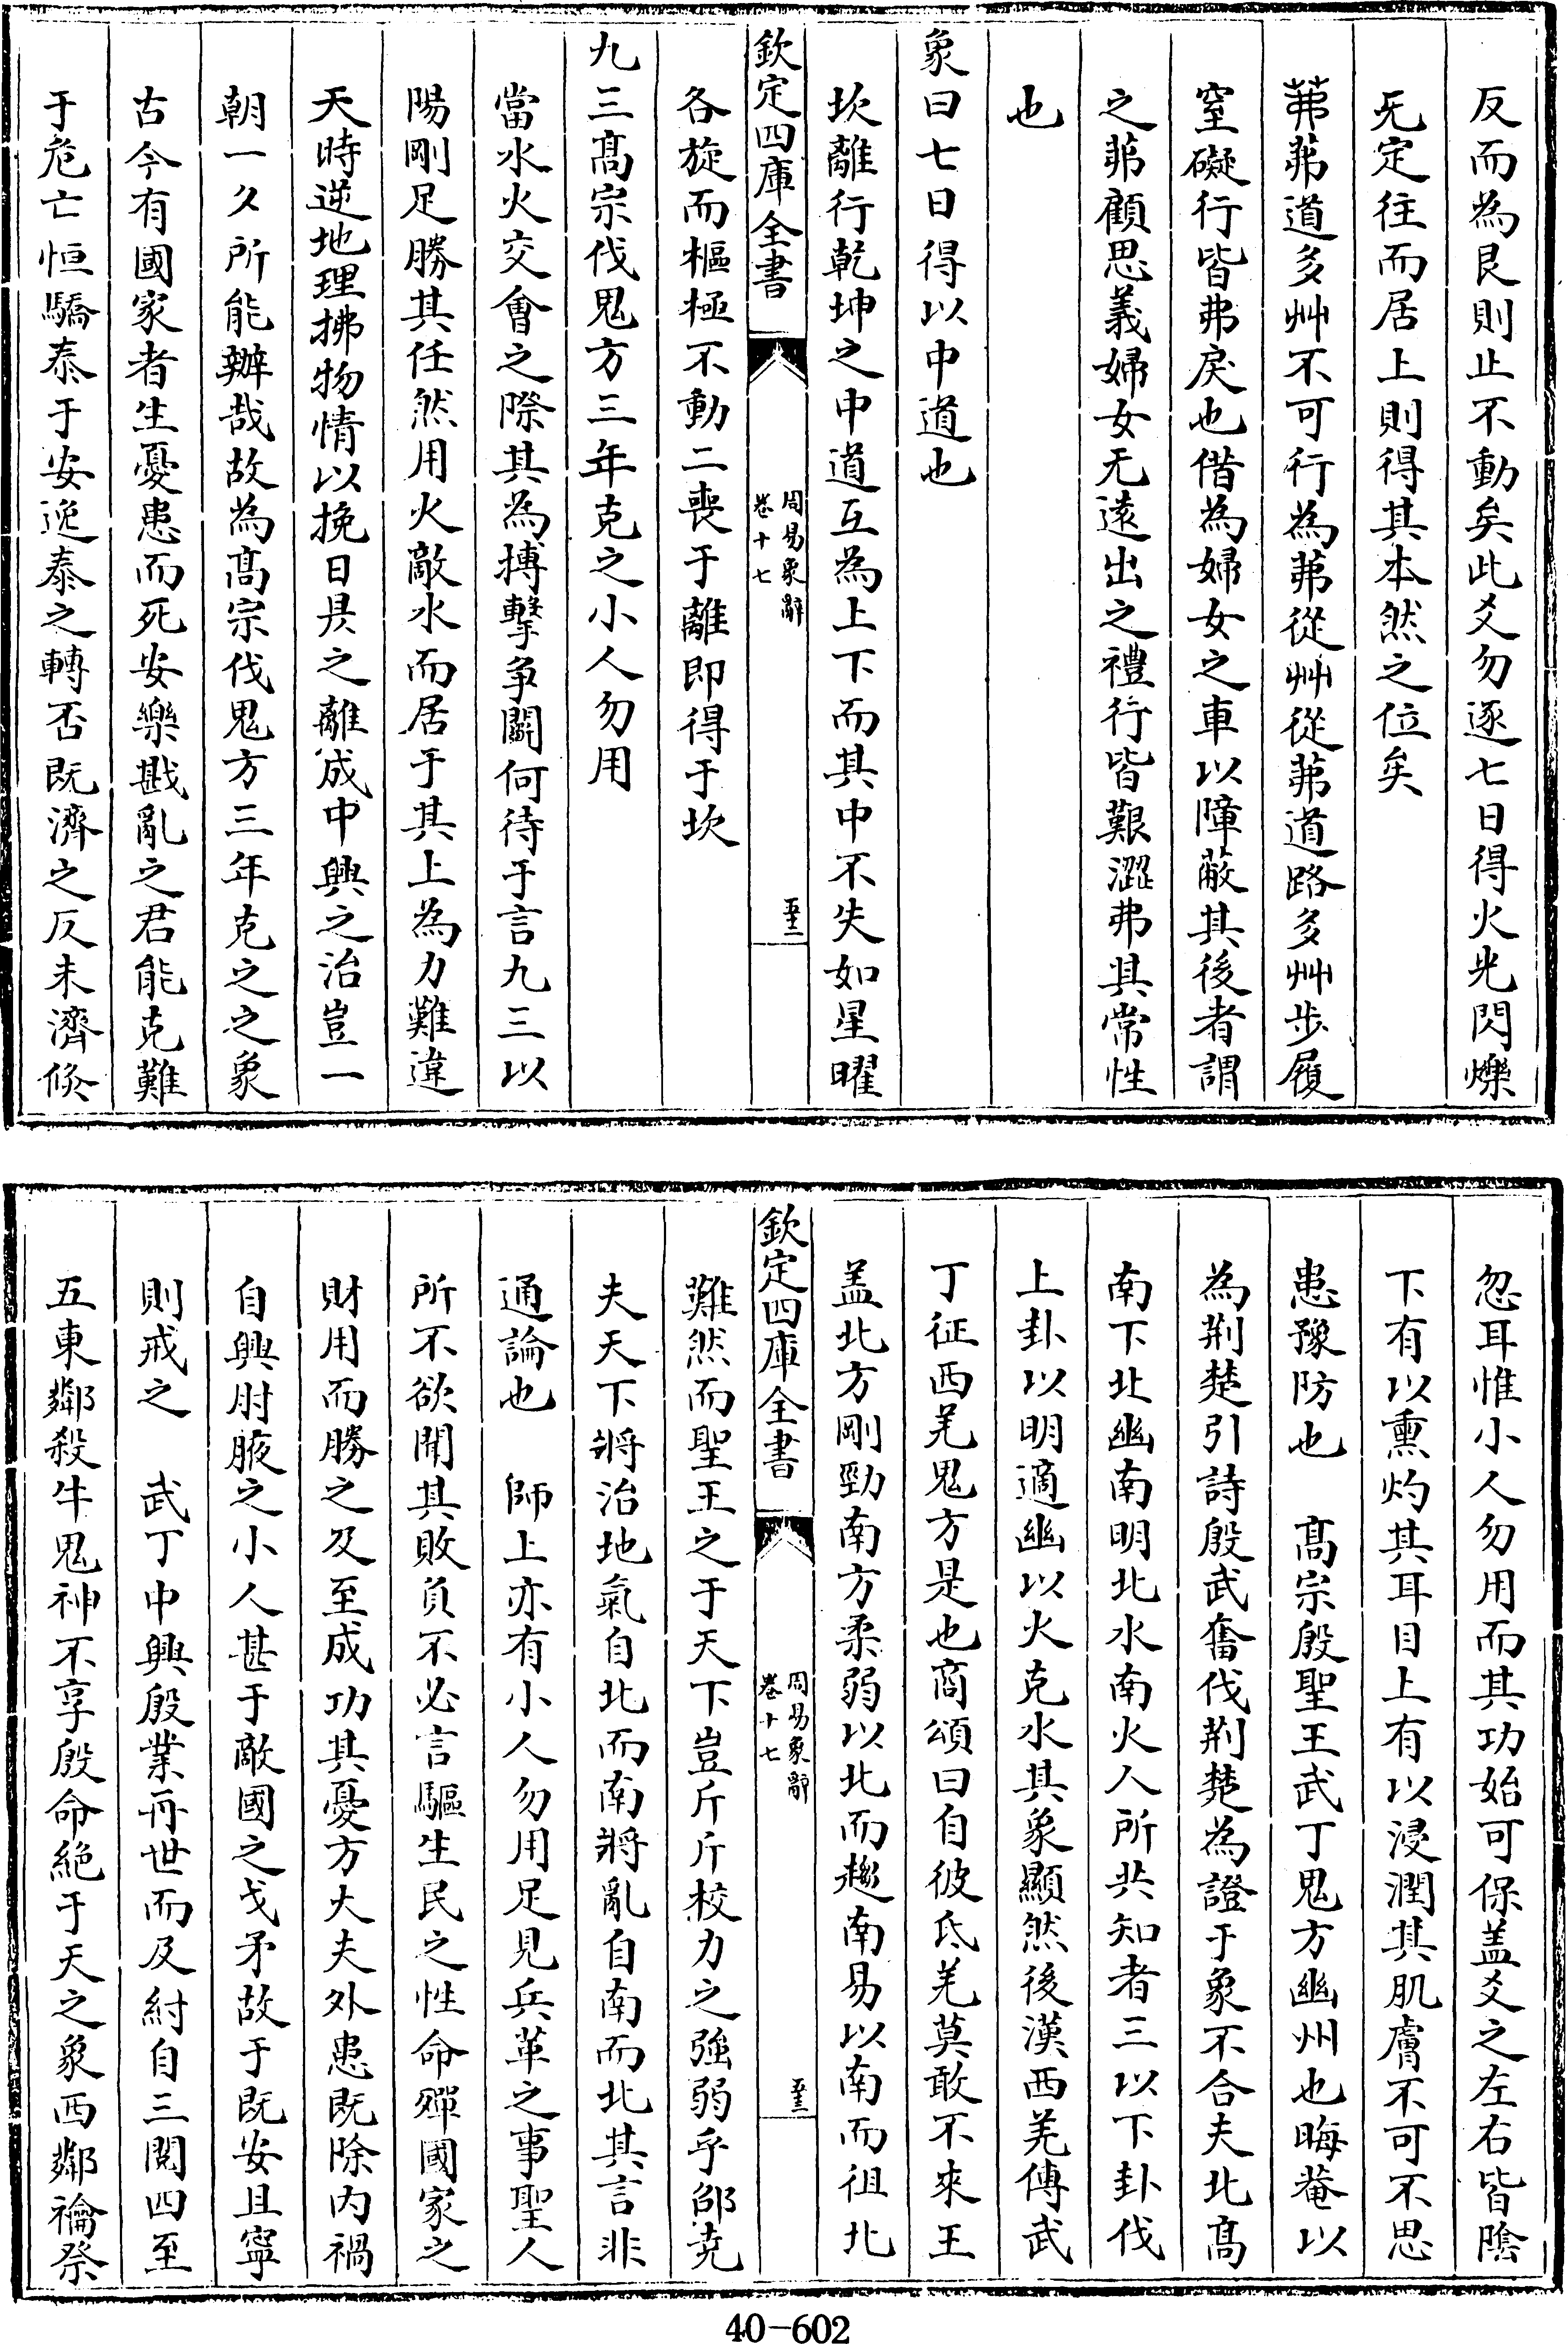 反而為艮則止不動矣此爻勿逐七日得火光閃爍
无定往而居上則得其本然之位矣
茀茀道多艸不可行為茀從艸從茀道路多艸步履
窒礙行皆弗戾也偕為婦女之車以障蔽其後者謂
之茀顧思義婦女无遠出之禮行皆艱澀弗其常性
也
象曰七日得以中道也
坎離行乾坤之中道互為上下而其中不失如星曜
欽定四庫全書
周易象辭
卷十七
各旋而樞極不動二喪于離即得于坎
九三髙宗伐鬼方三年克之小人勿用
當水火交會之際其為搏擊争鬭何待于言九三以
陽剛足勝其任然用火敵水而居于其上為力難違
天時逆地理拂物情以挽日昃之離成中興之治豈一
朝一夂所能辦哉故為髙宗伐鬼方三年克之之象
古今有國家者生憂患而死安樂戡亂之君能克難
于危亡恒驕泰于安逸泰之轉否既濟之反未濟倐
忽耳惟小人勿用而其功始可保盖爻之左右皆隂
下有以熏灼其耳目上有以浸潤其肌膚不可不思
患豫防也　髙宗殷聖王武丁鬼方幽州也晦菴以
為荆楚引詩殷武奮伐荆楚為證于象不合夫北髙
南下北幽南明北水南火人所共知者三以下卦伐
上卦以明適幽以火克水其象顯然後漢西羌傳武
丁征西羌鬼方是也商頌曰自彼氐羌莫敢不來王
盖北方剛勁南方柔弱以北而趨南易以南而徂北
欽定四庫全書
周易象辭
卷十七
難然而聖王之于天下豈斤斤校力之強弱乎邵堯
夫天下將治地氣自北而南將亂自南而北其言非
通論也　師上亦有小人勿用足見兵革之事聖人
所不欲聞其敗負不必言驅生民之性命殫國家之
財用而勝之及至成功其憂方大夫外患既除内禍
自興肘腋之小人甚于敵國之戈矛故于既安且寧
則戒之　武丁中興殷業再世而及紂自三閱四至
五東鄰殺牛鬼神不享殷命絶于天之象西鄰禴祭
40-602